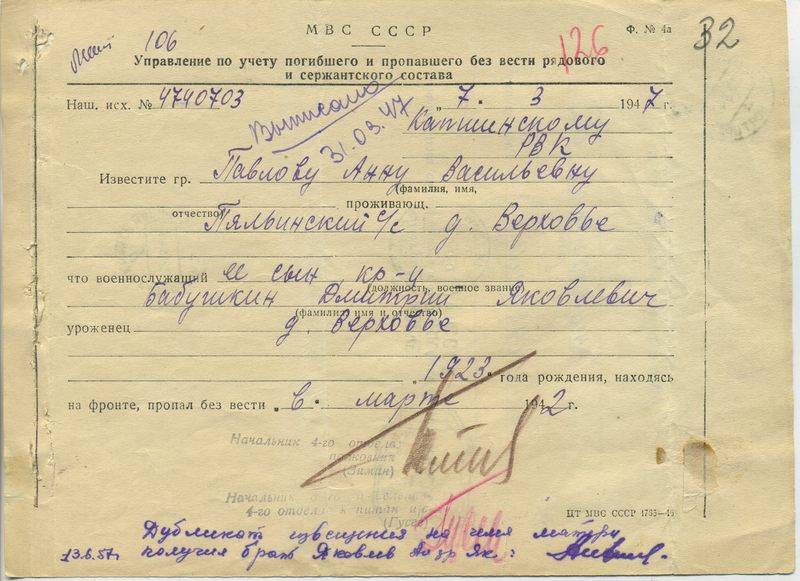 МВС СССР
Ф. № 4а
32
106
126
Управление по учету погибшего и пропавшего без вести рядового
и сержантского состава
Наш. исх. № 4740703 „7" 3 1947 г.
Выписано
31.03.47
Капшинскому
РВК
Известите гр. Павлову Анну Васильевну
(фамилия, имя,
проживающ.
отчество)
Пяльинский с/с д. Верховье
что военнослужащий её сын кр-ц
(должность, военное звание)
Бабушкин Дмитрий Яковлевич
(фамилия, имя и отчество)
уроженец д. Верховье
1923 года рождения, находясь
на фронте, пропал без вести „в" марте 1942 г.
Начальник 4-го отдела
полковник
(Зимин)
Начальник
4-го отдела капитан
(Гусев)
ЦТ МВС СССР
Дубликат извещения на имя матери
13.6.57г. получил брат Яковлев